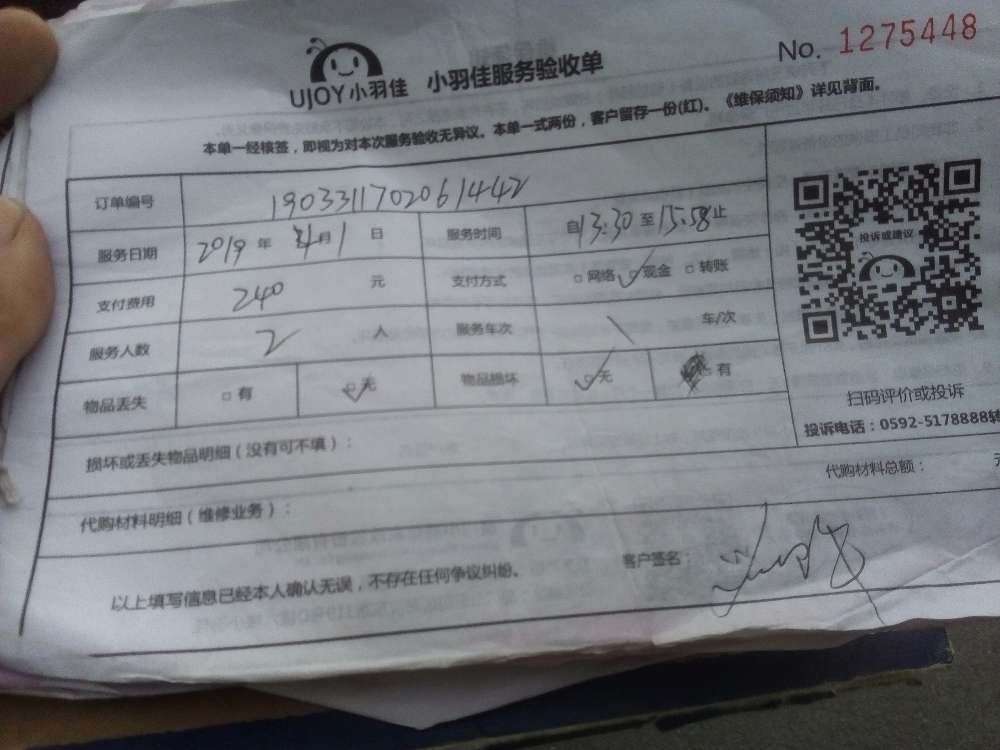 No. 1275448
UJOY小羽佳 小羽佳服务验收单
本单一经核签，即视为对本次服务验收无异议。本单一式两份，客户留存一份(红)。《维保须知》详见背面。
订单编号 1903311702061442
服务日期 2019年4月1日 服务时间 自13:30至15:58止
支付费用 240 元 支付方式 □网络 ☑现金 □转账
服务人数 2 人 服务车次 \ 车/次
物品丢失 □有 ☑无 物品损坏 ☑无 有
投诉或建议
扫码评价或投诉
投诉电话：0592-5178888转
损坏或丢失物品明细（没有可不填）：
代购材料明细（维修业务）： 代购材料总额：
以上填写信息已经本人确认无误，不存在任何争议纠纷。 客户签名：